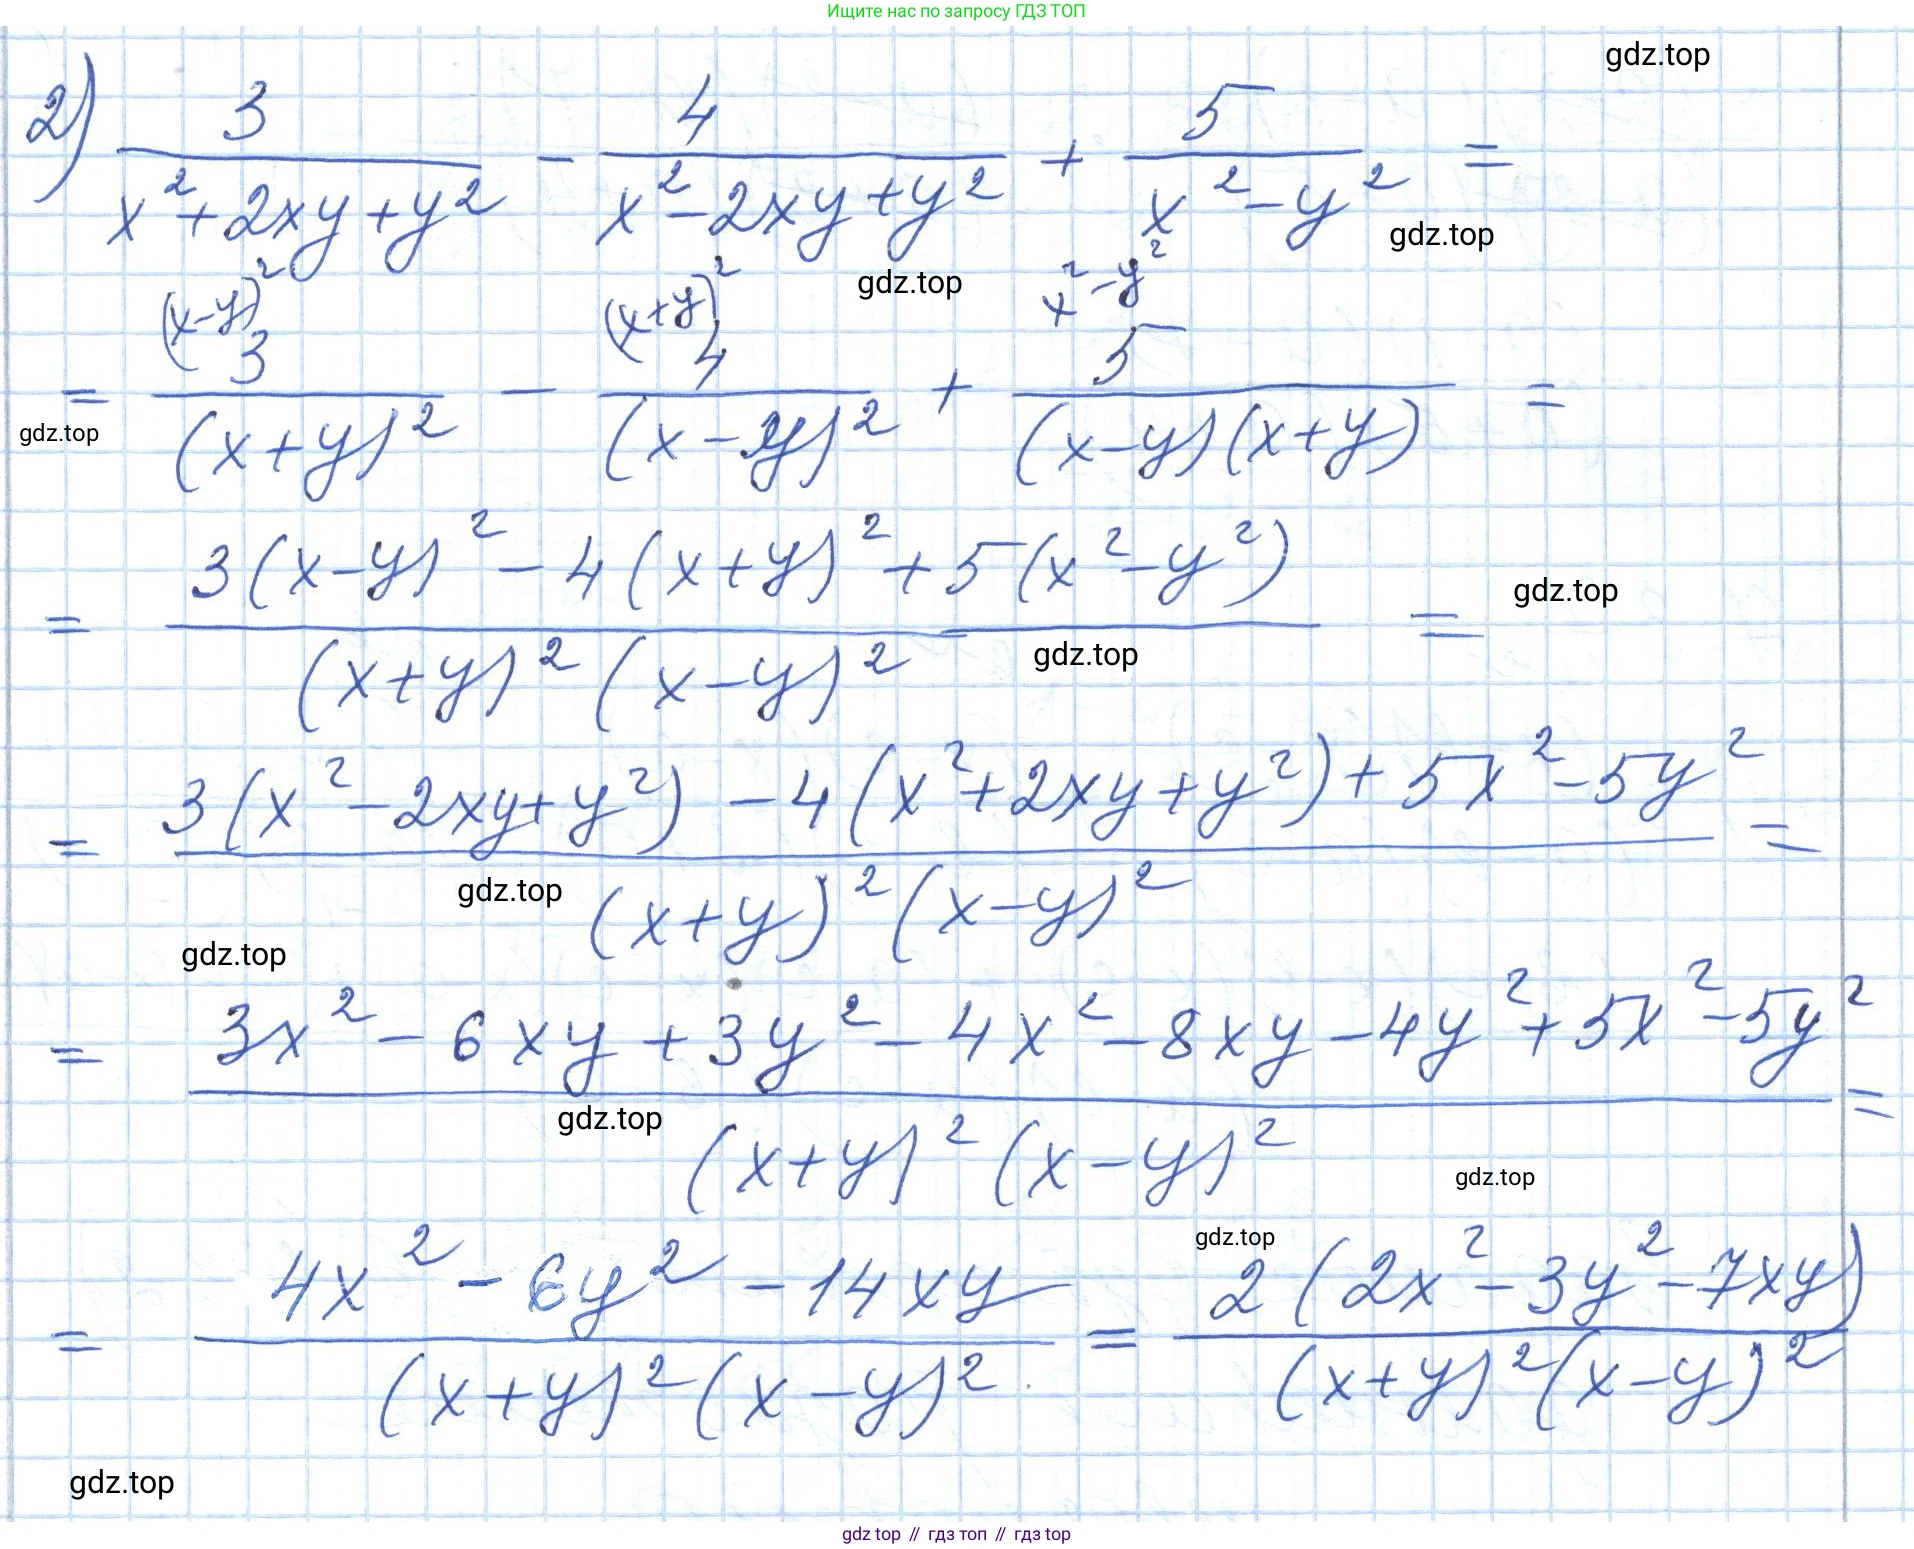 Ищите нас по запросу ГДЗ ТОП
gdz.top
2) 3/(x²+2xy+y²) - 4/(x²-2xy+y²) + 5/(x²-y²) =
gdz.top
gdz.top
(x-y)² (x+y)² x²-y²
= 3/(x+y)² - 4/(x-y)² + 5/((x-y)(x+y)) =
gdz.top
= (3(x-y)² - 4(x+y)² + 5(x²-y²))/((x+y)²(x-y)²) =
gdz.top
gdz.top
= (3(x²-2xy+y²) - 4(x²+2xy+y²) + 5x²-5y²)/((x+y)²(x-y)²) =
gdz.top
gdz.top
= (3x² - 6xy + 3y² - 4x² - 8xy - 4y² + 5x² - 5y²)/((x+y)²(x-y)²) =
gdz.top
gdz.top
gdz.top
= (4x² - 6y² - 14xy)/((x+y)²(x-y)²) = 2(2x²-3y²-7xy)/((x+y)²(x-y)²)
gdz.top
gdz top // гдз топ // гдз top